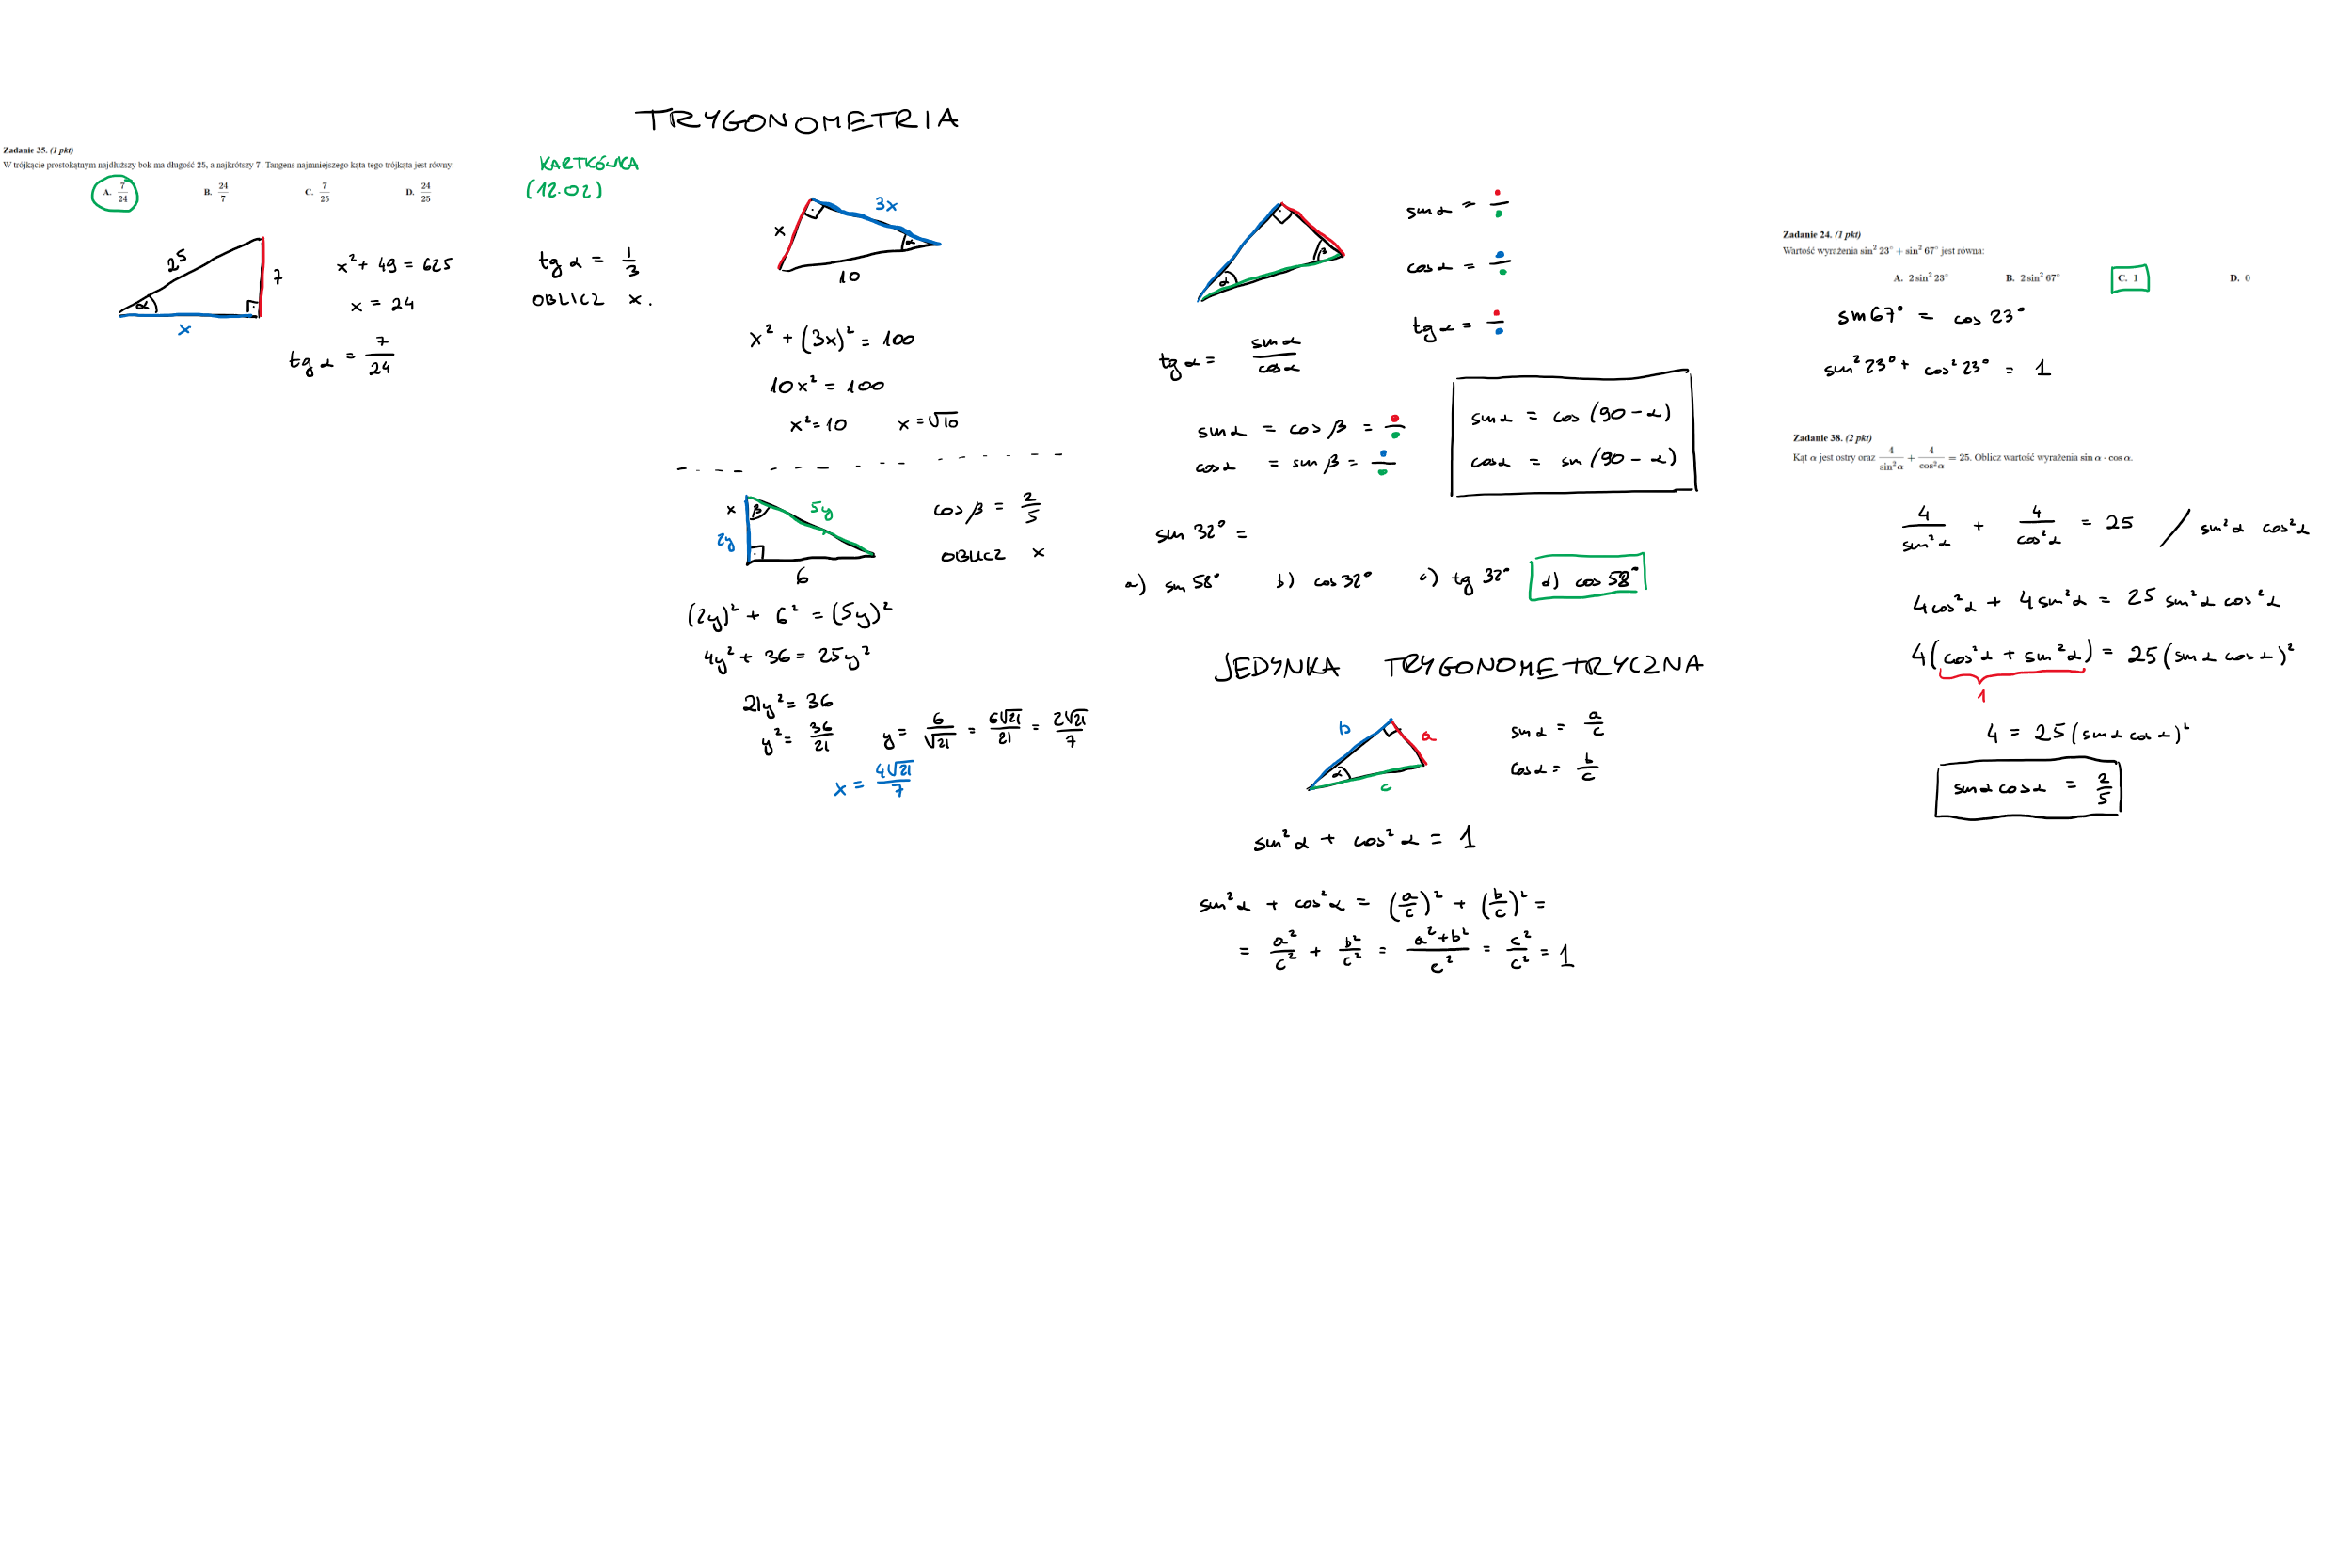 TRYGONOMETRIA
Zadanie 35. (1 pkt)
W trójkącie prostokątnym najdłuższy bok ma długość 25, a najkrótszy 7. Tangens najmniejszego kąta tego trójkąta jest równy:
A. 7/24 B. 24/7 C. 7/25 D. 24/25
25
7
α
x
x² + 49 = 625
x = 24
tg α = 7/24
KARTKÓWKA
(12.02)
tg α = 1/3
OBLICZ x.
x
3x
α
10
x² + (3x)² = 100
10x² = 100
x² = 10 x = √10
x
β
5y
2y
6
cos β = 2/5
OBLICZ x
(2y)² + 6² = (5y)²
4y² + 36 = 25y²
21y² = 36
y² = 36/21 y = 6/√21 = 6√21/21 = 2√21/7
x = 4√21/7
α
β
sin α =
cos α =
tg α =
tg α = sin α/cos α
sin α = cos β =
cos α = sin β =
sin α = cos (90 - α)
cos α = sin (90 - α)
sin 32° =
a) sin 58° b) cos 32° c) tg 32° d) cos 58°
JEDYNKA TRYGONOMETRYCZNA
b
a
α
c
sin α = a/c
cos α = b/c
sin² α + cos² α = 1
sin² α + cos² α = (a/c)² + (b/c)² =
= a²/c² + b²/c² = a²+b²/c² = c²/c² = 1
Zadanie 24. (1 pkt)
Wartość wyrażenia sin² 23° + sin² 67° jest równa:
A. 2 sin² 23° B. 2 sin² 67° C. 1 D. 0
sin 67° = cos 23°
sin² 23° + cos² 23° = 1
Zadanie 38. (2 pkt)
Kąt α jest ostry oraz 4/sin²α + 4/cos²α = 25. Oblicz wartość wyrażenia sin α · cos α.
4/sin² α + 4/cos² α = 25 / sin² α cos² α
4cos² α + 4 sin² α = 25 sin² α cos² α
4(cos² α + sin² α) = 25 (sin α cos α)²
1
4 = 25 (sin α cos α)²
sin α cos α = 2/5